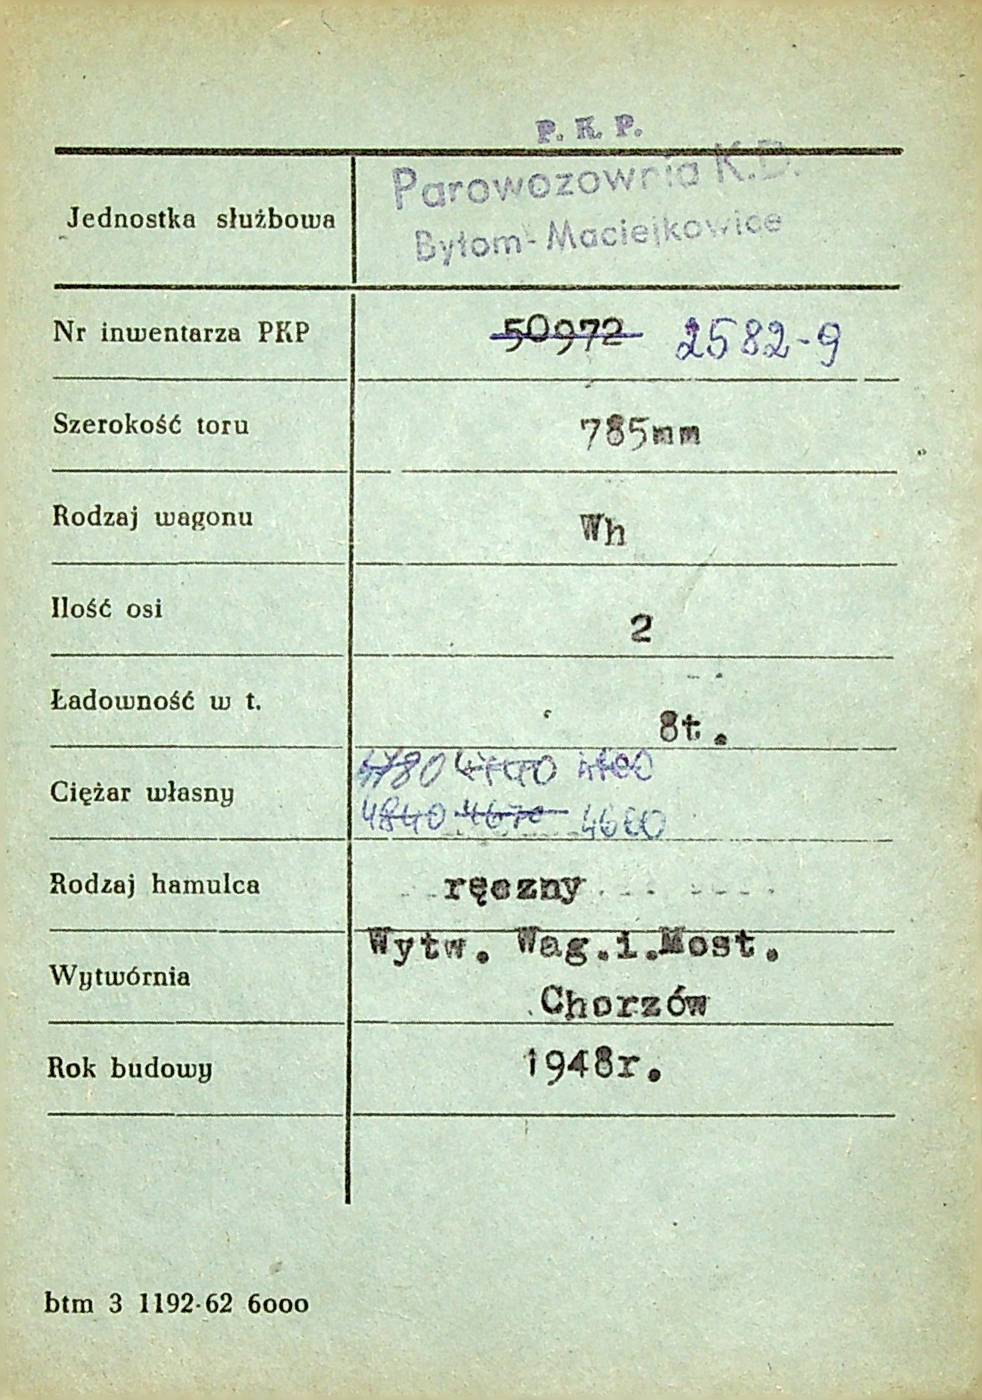 P. K. P.
Parowozownia K.D.
Jednostka służbowa
Bytom-Maciejkowice
Nr inwentarza PKP 50972 2582-9
Szerokość toru 785mm
Rodzaj wagonu Wh
Ilość osi 2
Ładowność w t. 8t.
4780
Ciężar własny
4840 4670 4660
Rodzaj hamulca ręczny
Wytw. Wag.i.Most.
Wytwórnia
Chorzów
Rok budowy 1948r.
btm 3 1192-62 6000